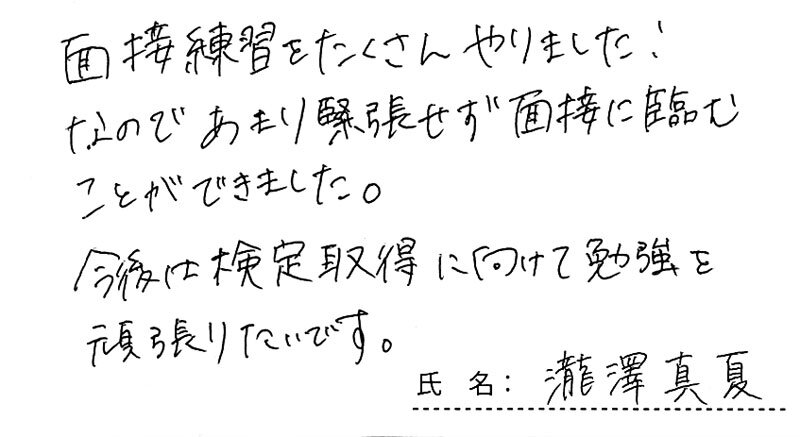 面接練習をたくさんやりました!
なのであまり緊張せず面接に臨む
ことができました。
今後は検定取得に向けて勉強を
頑張りたいです。
氏名: 瀧澤真夏